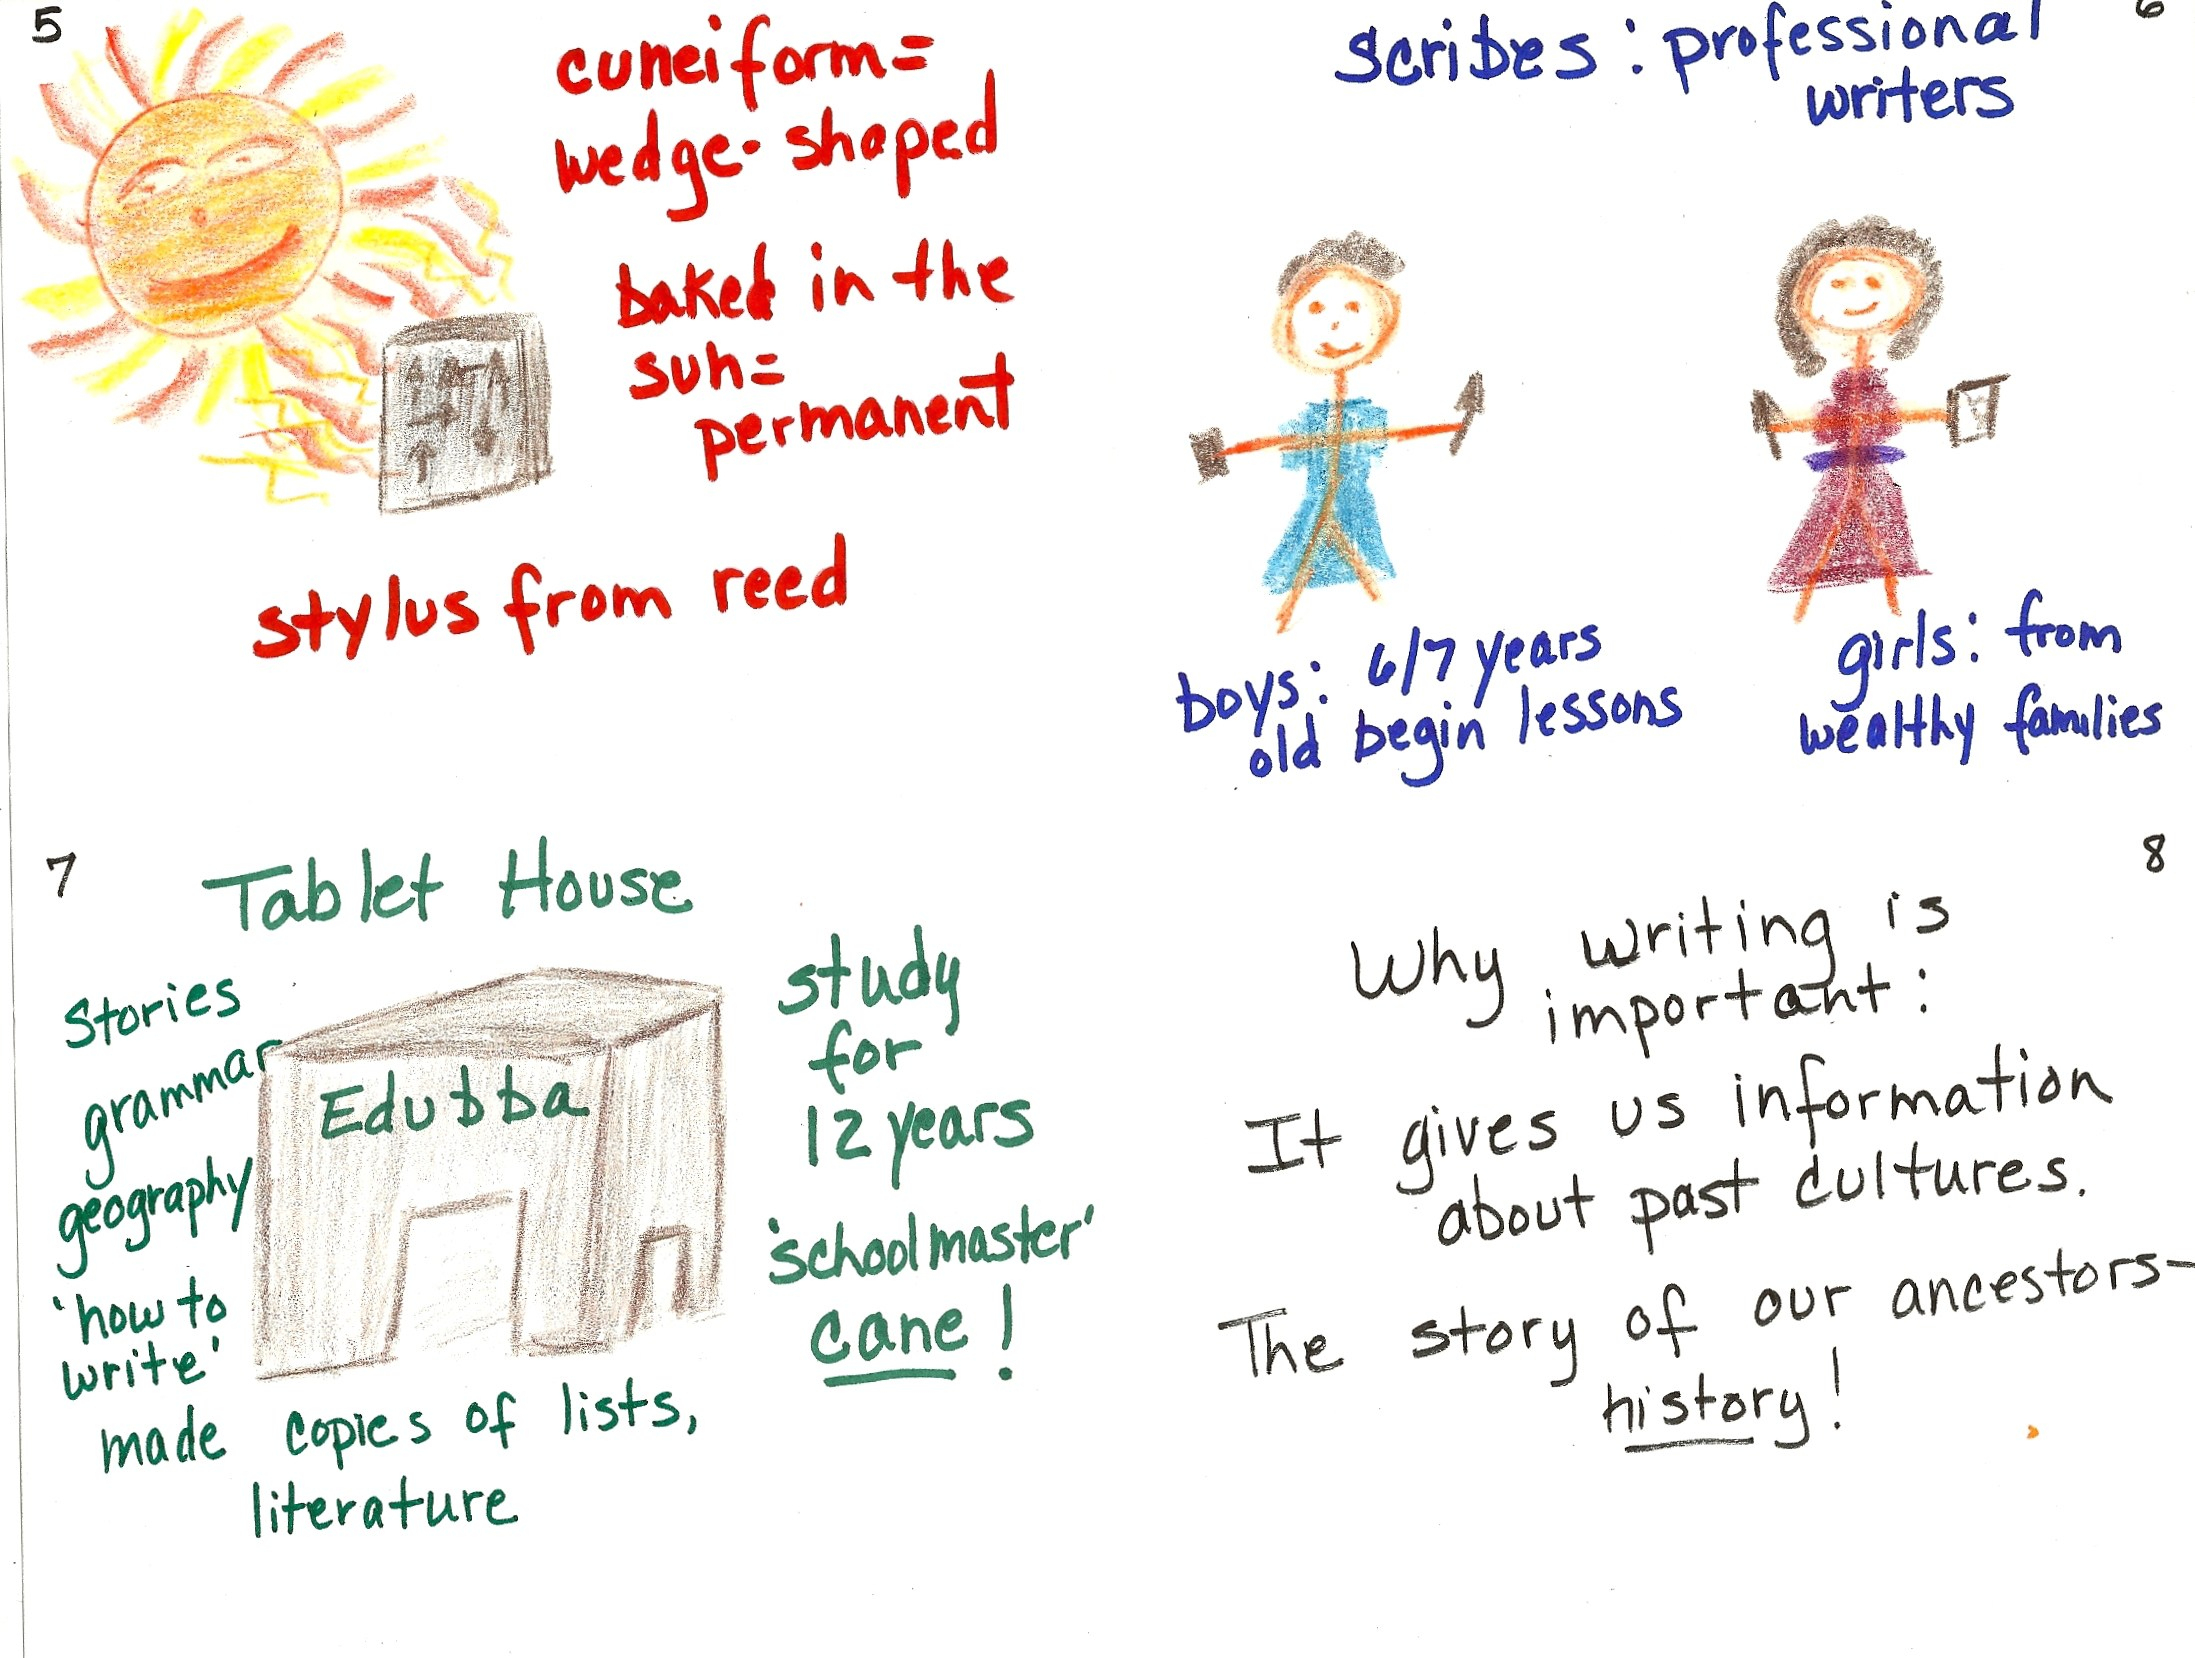 5
cuneiform=
wedge-shaped
baked in the
sun=
permanent
stylus from reed
6
Scribes: professional
writers
boys: 6/7 years
old begin lessons
girls: from
wealthy families
7
Tablet House
Stories
grammar
geography
'how to
write'
Edubba
study
for
12 years
'schoolmaster'
cane!
made copies of lists,
literature
8
Why writing is
important:
It gives us information
about past cultures.
The story of our ancestors-
history!